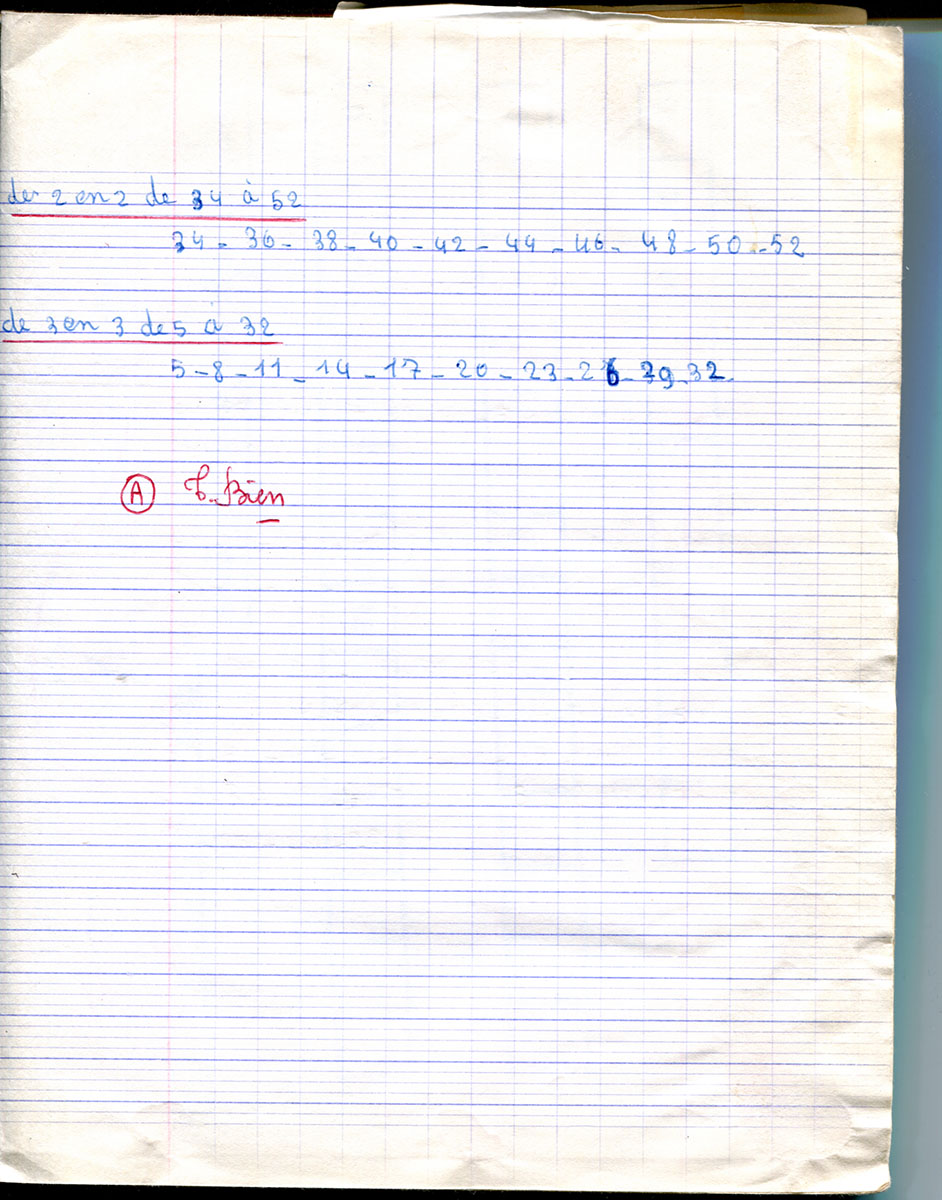 de 2 en 2 de 34 à 52
34 - 36 - 38 - 40 - 42 - 44 - 46 - 48 - 50 - 52
de 3 en 3 de 5 à 32
5 - 8 - 11 - 14 - 17 - 20 - 23 - 26 - 29 - 32.
A T. Bien